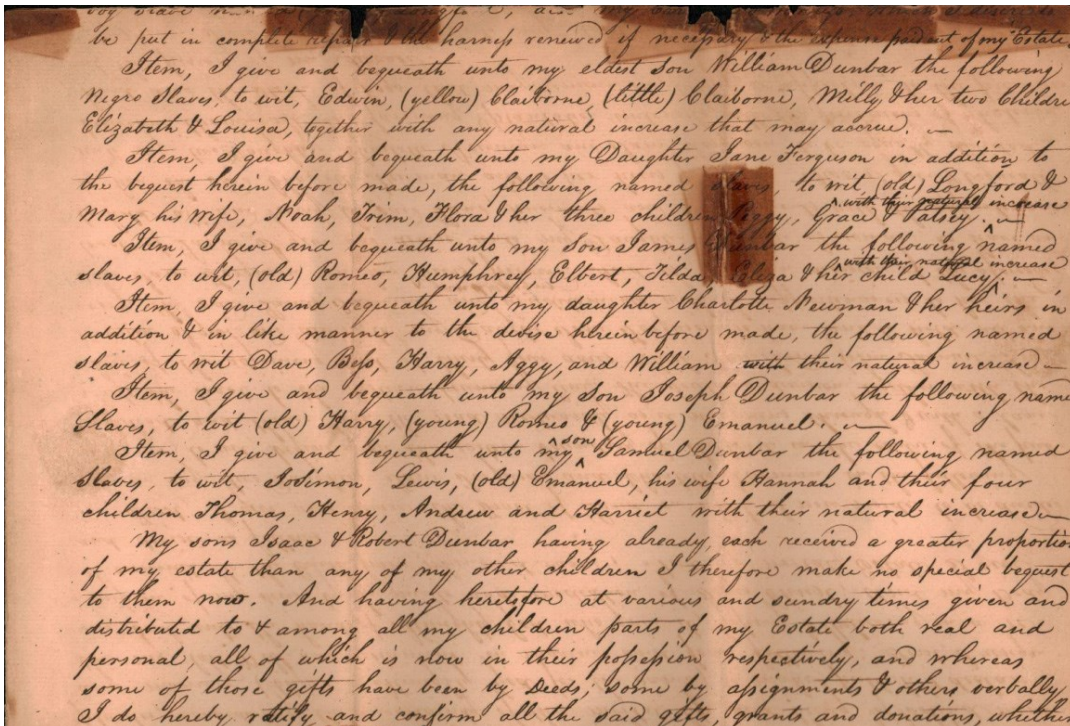 boy slave
be put in complete repair & the harness renewed if necessary & the expense paid out of my Estate.
Item, I give and bequeath unto my eldest Son William Dunbar the following
Negro Slaves, to wit, Edwin, (yellow) Claiborne, (little) Claiborne, Milly, & her two Childre
Elizabeth & Louisa, together with any natural increase that may accrue. —
Item, I give and bequeath unto my Daughter Jane Ferguson in addition to
the bequest herein before made, the following named slaves, to wit, (old) Longford &
Mary his wife, Noah, Trim, Flora & her three children Peggy, Grace & Patsey. ^ with their natural increase —
Item, I give and bequeath unto my Son James Dunbar the following named
slaves, to wit, (old) Romeo, Humphrey, Elbert, Tilda, Eliza & her child Lucy, ^ with their natural increase —
Item, I give and bequeath unto my daughter Charlotte Newman & her heirs in
addition & in like manner to the devise herein before made, the following named
slaves, to wit Dave, Bess, Harry, Aggy, and William with their natural increase —
Item, I give and bequeath unto my Son Joseph Dunbar the following name
Slaves, to wit (old) Harry, (young) Romeo & (young) Emanuel. —
Item, I give and bequeath unto my ^ son Samuel Dunbar the following named
slaves, to wit, Josimon, Lewis, (old) Emanuel, his wife Hannah and their four
children Thomas, Henry, Andrew and Harriet with their natural increase —
My sons Isaac & Robert Dunbar having already, each received a greater proportion
of my estate than any of my other children I therefore make no special bequest
to them now. And having heretofore at various and sundry times given and
distributed to & among all my children parts of my Estate both real and
personal, all of which is now in their possession respectively, and whereas
some of those gifts have been by Deeds, some by assignments & others verbally
I do hereby ratify and confirm all the said gifts, grants and donations, whether